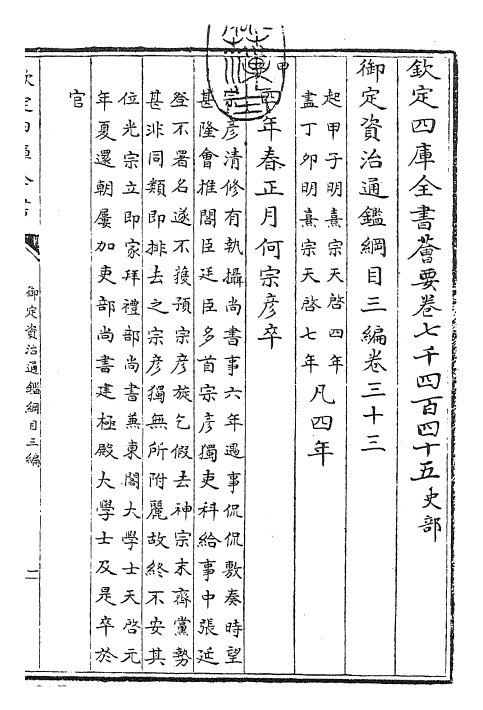 欽定四庫全書薈要卷七千四百四十五史部
御定資治通鑑綱目三編卷三十三
起甲子明熹宗天啓四年
盡丁卯明熹宗天啓七年
凡四年
甲
四年春正月何宗彥卒
宗彥清修有執攝尚書事六年遇事侃侃敷奏時望
甚隆會推閣臣廷臣多首宗彥獨吏科給事中張延
登不署名遂不獲預宗彥旋乞假去神宗末齊黨勢
甚非同類即排去之宗彥獨無所附麗故終不安其
位光宗立即家拜禮部尚書兼東閣大學士天啓元
年夏還朝屢加吏部尚書建極殿大學士及是卒於
官
御定資治通鑑綱目三編